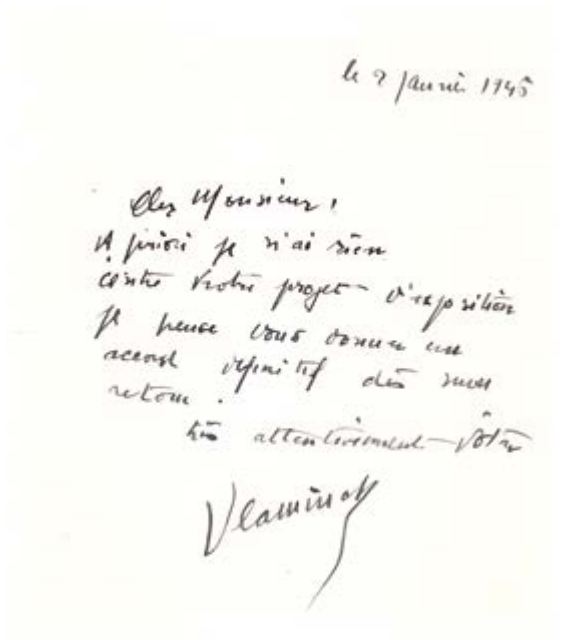 le 2 Janvier 1945
Cher Monsieur !
A priori je n'ai rien
contre votre projet d'exposition
je pense vous donner un
accord définitif dès mon
retour.
très attentivement vôtre
Vlaminck